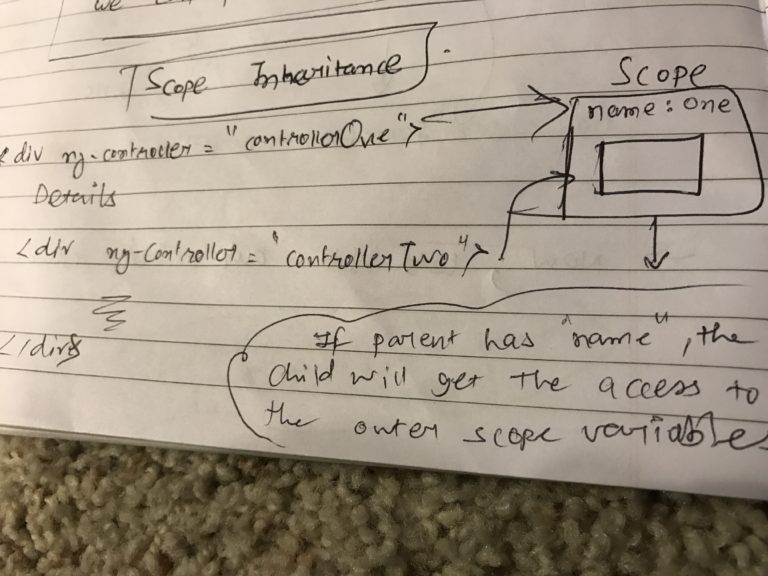 we
Scope Inheritance
Scope
name: One
<div ng-controller = "controllerOne">
Details
<div ng-Controller = "controller Two">
</div>
If parent has "name", the
child will get the access to
the outer scope variables